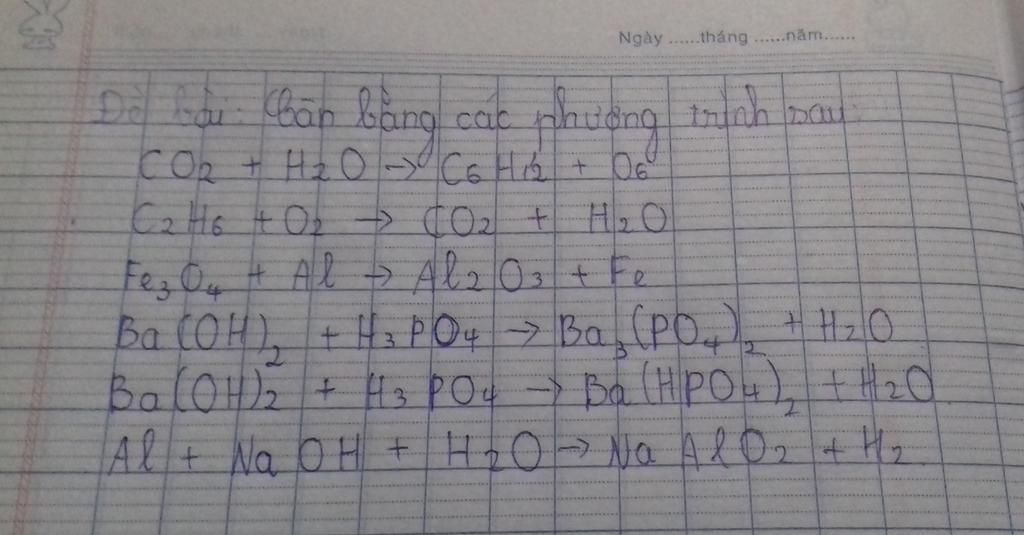 Ngày ......tháng ......năm......
Đề bài: Cân bằng các phương trình sau:
CO2 + H2O → C6H12 + O6
C2H6 + O2 → CO2 + H2O
Fe3O4 + Al → Al2O3 + Fe
Ba(OH)2 + H3PO4 → Ba3(PO4)2 + H2O
Ba(OH)2 + H3PO4 → Ba(HPO4)2 + H2O
Al + NaOH + H2O → NaAlO2 + H2